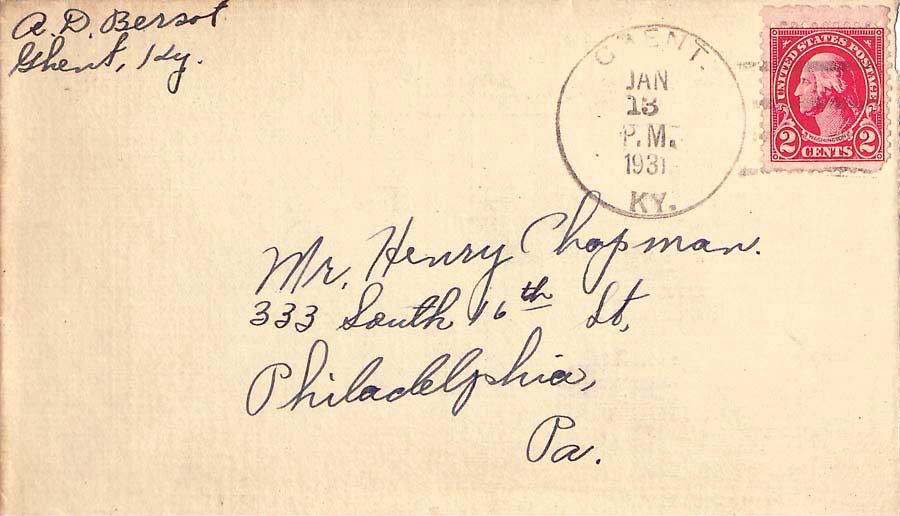 A. D. Bersot
Ghent, Ky.
GHENT.
JAN
13
P.M.
1931
KY.
UNITED STATES POSTAGE
WASHINGTON
2 CENTS 2
Mr. Henry Chapman.
333 South 16th St,
Philadelphia,
Pa.